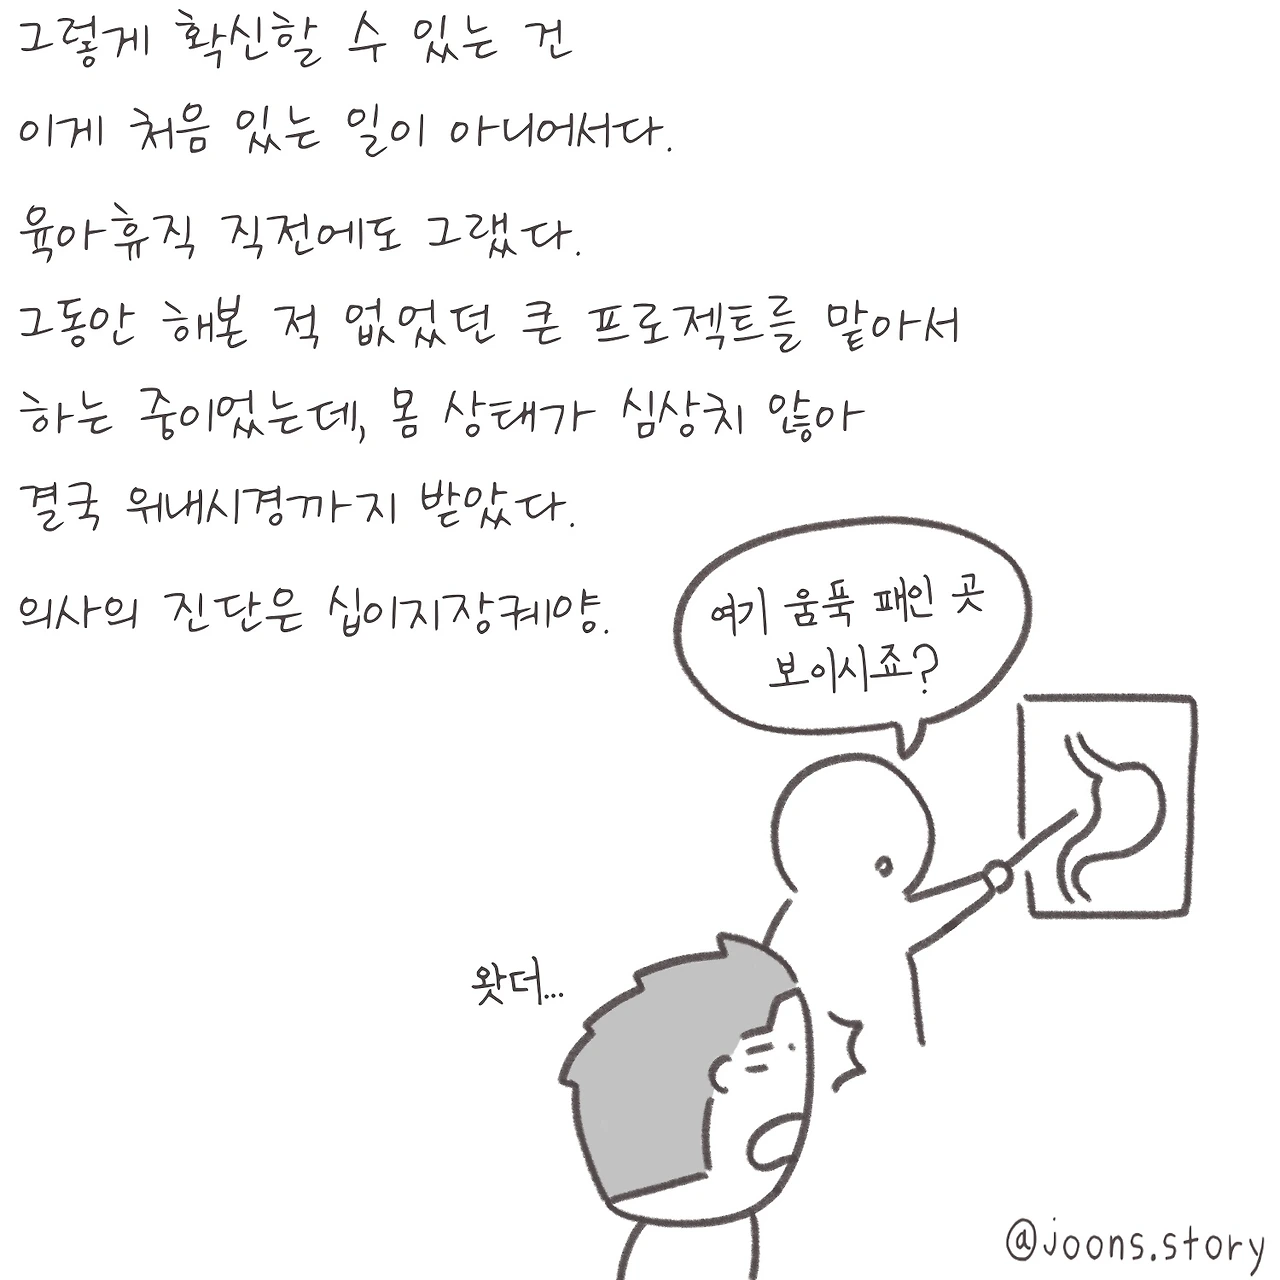 그렇게 확신할 수 있는 건
이게 처음 있는 일이 아니어서다.
육아휴직 직전에도 그랬다.
그동안 해본 적 없었던 큰 프로젝트를 맡아서
하는 중이었는데, 몸 상태가 심상치 않아
결국 위내시경까지 받았다.
의사의 진단은 십이지장궤양.
여기 움푹 패인 곳
보이시죠?
왓더...
@joons.story